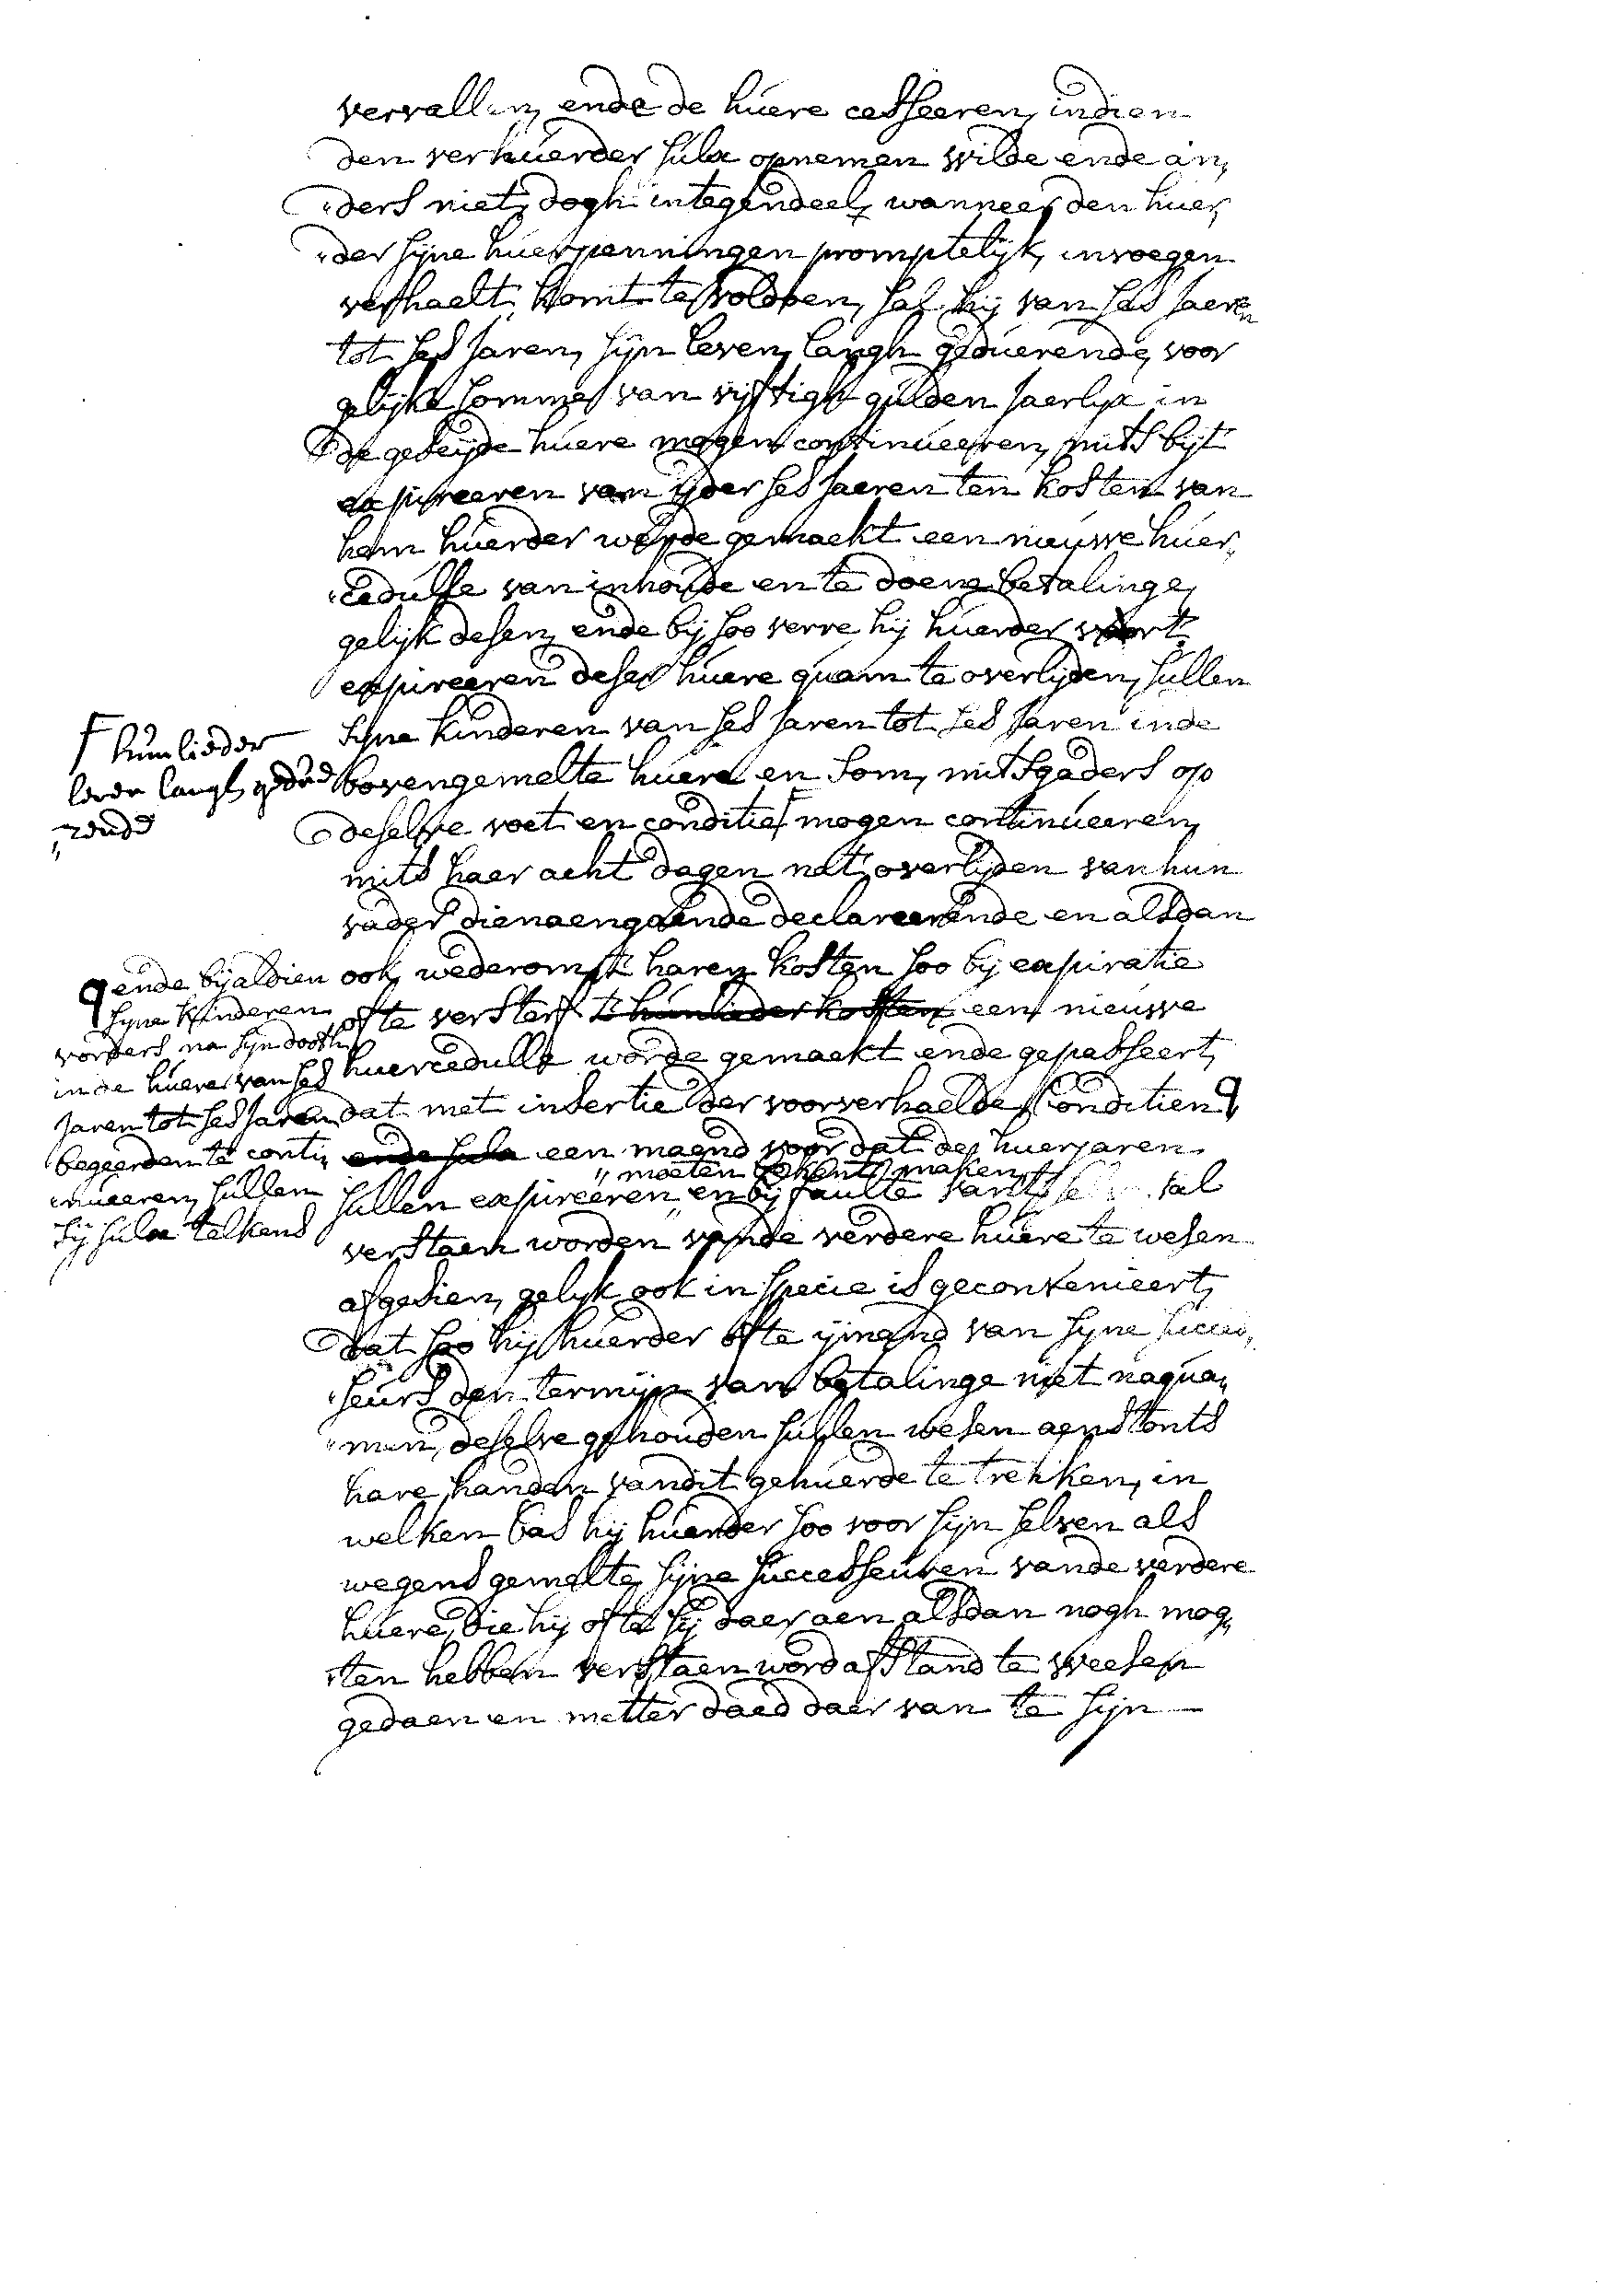 vervallen, ende de huere cesseeren, indien
den verhuerder sulx opnemen wilde ende an„
„ders niet, dogh integendeel, wanneer den huer„
„der sijne huerpenningen promptelijk, invoegen
verhaelt, komt te voldoen, sal hij van ses jaeren
tot ses jaren, sijn leven langh geduerende, voor
gelijke somme van vijftigh gulden jaerlijx in
de geseijde huere mogen continueeren, mits bijt
expireeren van ijder ses jaeren ten kosten van
hem huerder werde gemaekt een nieuwe huer„
„cedulle van inhoude en te doene betalinge,
gelijk desen, ende bij soo verre hij huerder voort
expireeren deser huere quam te overlijden, sullen
sijne kinderen van ses jaren tot ses jaren inde
bovengemelte huere en som, mitsgaders op
deselve voet en conditie F mogen continueeren,
F hunlieder
leven langh gedue
„rende
mits haer acht dagen nat overlijden van hun
vader dienaengaende declareerende en alsdan
ook wederom t' haren kosten soo bij expiratie
ofte versterf t' hunlieder kosten een nieuwe
huercedulle worde gemaekt ende gepasseert,
dat met insertie der voorverhaelde conditien q
q ende bij aldien
sijne kinderen
vorders na sijn doodt
in de huere van ses
jaren tot ses jaren
begeerden te conti„
„nueeren, sullen
sij sulx telkens
ende sulx een maend voor dat de huerjaren
„ moeten bekent maken,
sullen expireeren en bij faulte vant selve sal
verstaen worden vande verdere huere te wesen
afgesien, gelijk ook in specie is geconvenieert,
dat soo hij huerder ofte ijmand van sijne succes„
„seurs den termijn van betalinge niet naqua„
„men, deselve gehouden sullen wesen aenstonts
hare handen van dit gehuerde te trekken, in
welken cas hij huerder soo voor sijn selven als
wegens gemelte sijne successeuren vande verdere
huere, die hij ofte sij daer aen alsdan nogh mog„
„ten hebben verstaen word afstand te weesen
gedaen en metter daed daer van te sijn